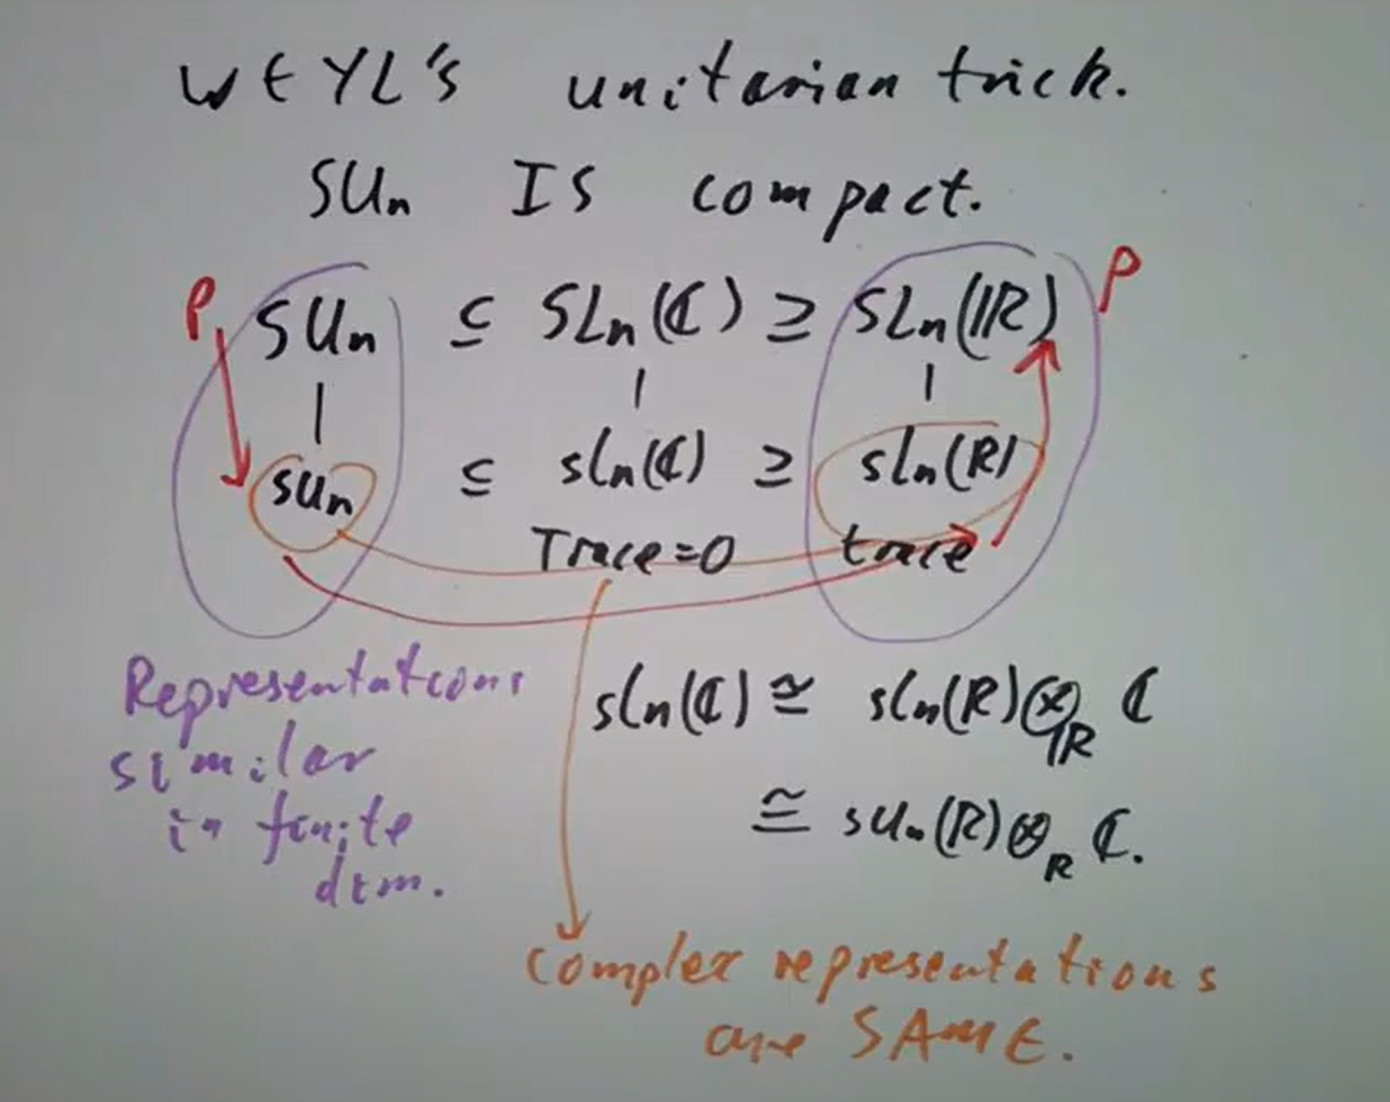 WEYL's unitarian trick.
SUn IS compact.
P SUn ⊆ SLn(ℂ) ⊇ SLn(ℝ) P
sun ⊆ sln(ℂ) ⊇ sln(R)
Trace=0 trace
Representations
similar
in finite
dim.
sln(ℂ) ≅ sln(R)⊗R ℂ
≅ sun(R)⊗R ℂ.
Complex representations
are SAME.